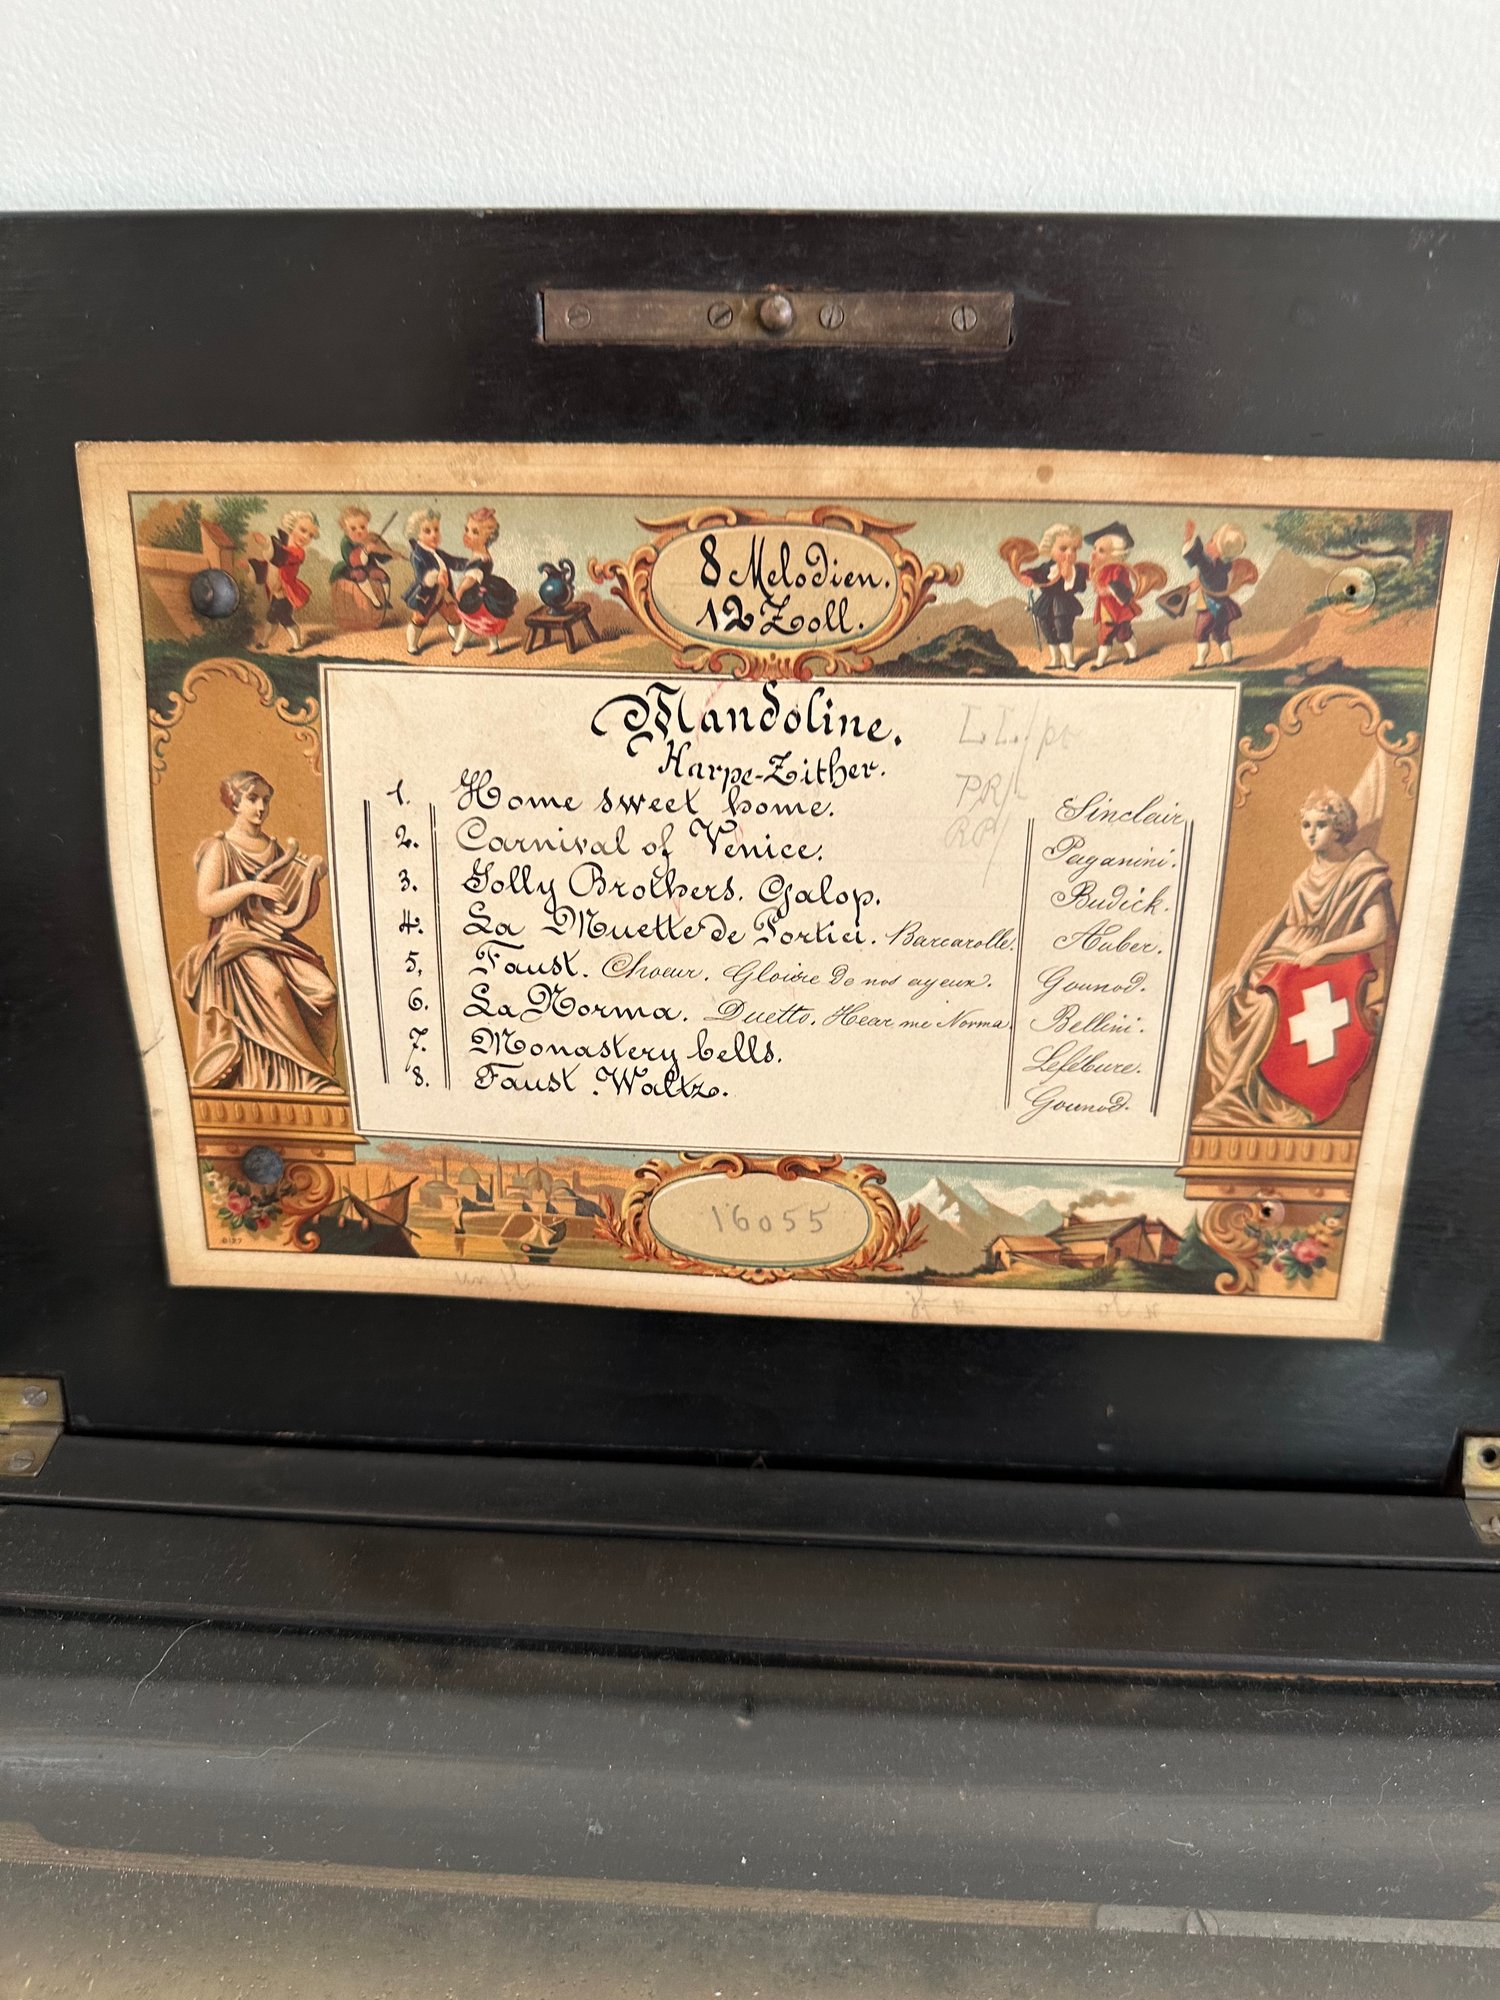 8 Melodien.
12 Zoll.
Mandoline.
Harpe-Zither.
1. Home sweet home. Sinclair.
2. Carnival of Venice. Paganini.
3. Jolly Brothers. Galop. Budick.
4. La Muette de Portici. Barcarolle. Auber.
5. Faust. Choeur. Gloire de nos ayeux. Gounod.
6. La Norma. Duetto. Hear me Norma. Bellini.
7. Monastery bells. Lefébure.
8. Faust. Waltz. Gounod.
16055